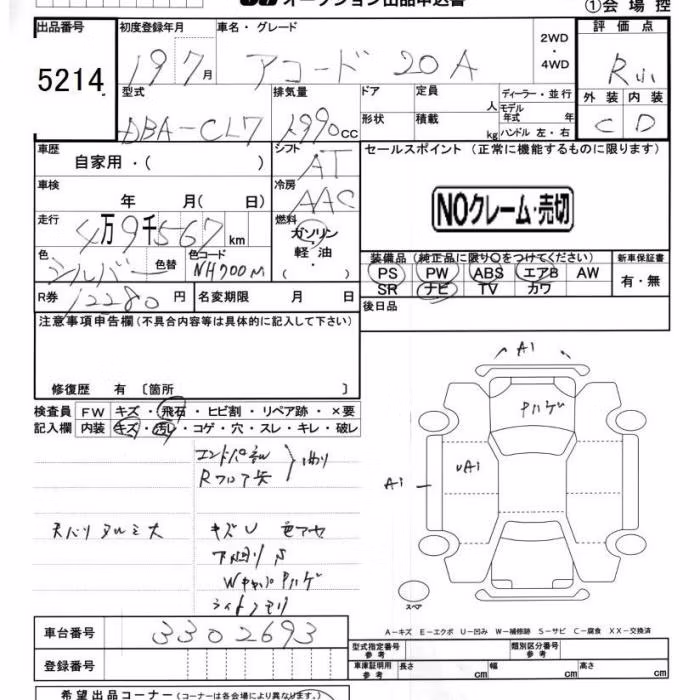 オークション出品申込書 ①会場控
出品番号 初度登録年月 車名・グレード 2WD・4WD 評価点
5214 19 7月 アコード 20A R
型式 排気量 ドア 定員 人 ディーラー・並行 外装 内装
DBA-CL7 1990cc 形状 積載 kg モデル年式 年 ハンドル 左・右 C D
車歴 自家用・( ) シフト AT セールスポイント (正常に機能するものに限ります)
車検 年 月( 日) 冷房 AAC NOクレーム・売切
走行 4万9千567km 燃料 ガソリン・軽油・( )
色 シルバー 色替 色コード NH700M 装備品 (純正品に限り○をつけてください) 新車保証書
PS PW ABS エアB AW 有・無
SR ナビ TV カワ
R券 12280円 名変期限 月 日 後日品
注意事項申告欄 (不具合内容等は具体的に記入して下さい)
修復歴 有 〔箇所 〕
検査員記入欄 FW キズ・飛石・ヒビ割・リペア跡・×要
内装 キズ・汚レ・コゲ・穴・スレ・キレ・破レ
A1
Pハゲ
UA1
A1
キズU 色アセ
下廻りS
Pハゲ
スペア
A-キズ E-エクボ U-凹み W-補修跡 S-サビ C-腐食 XX-交換済
車台番号 3302693
型式指定番号 参考 類別区分番号 参考
登録番号 車庫証明用 参考 長さ cm 幅 cm 高さ cm
希望出品コーナー (コーナーは各会場により異なります。)